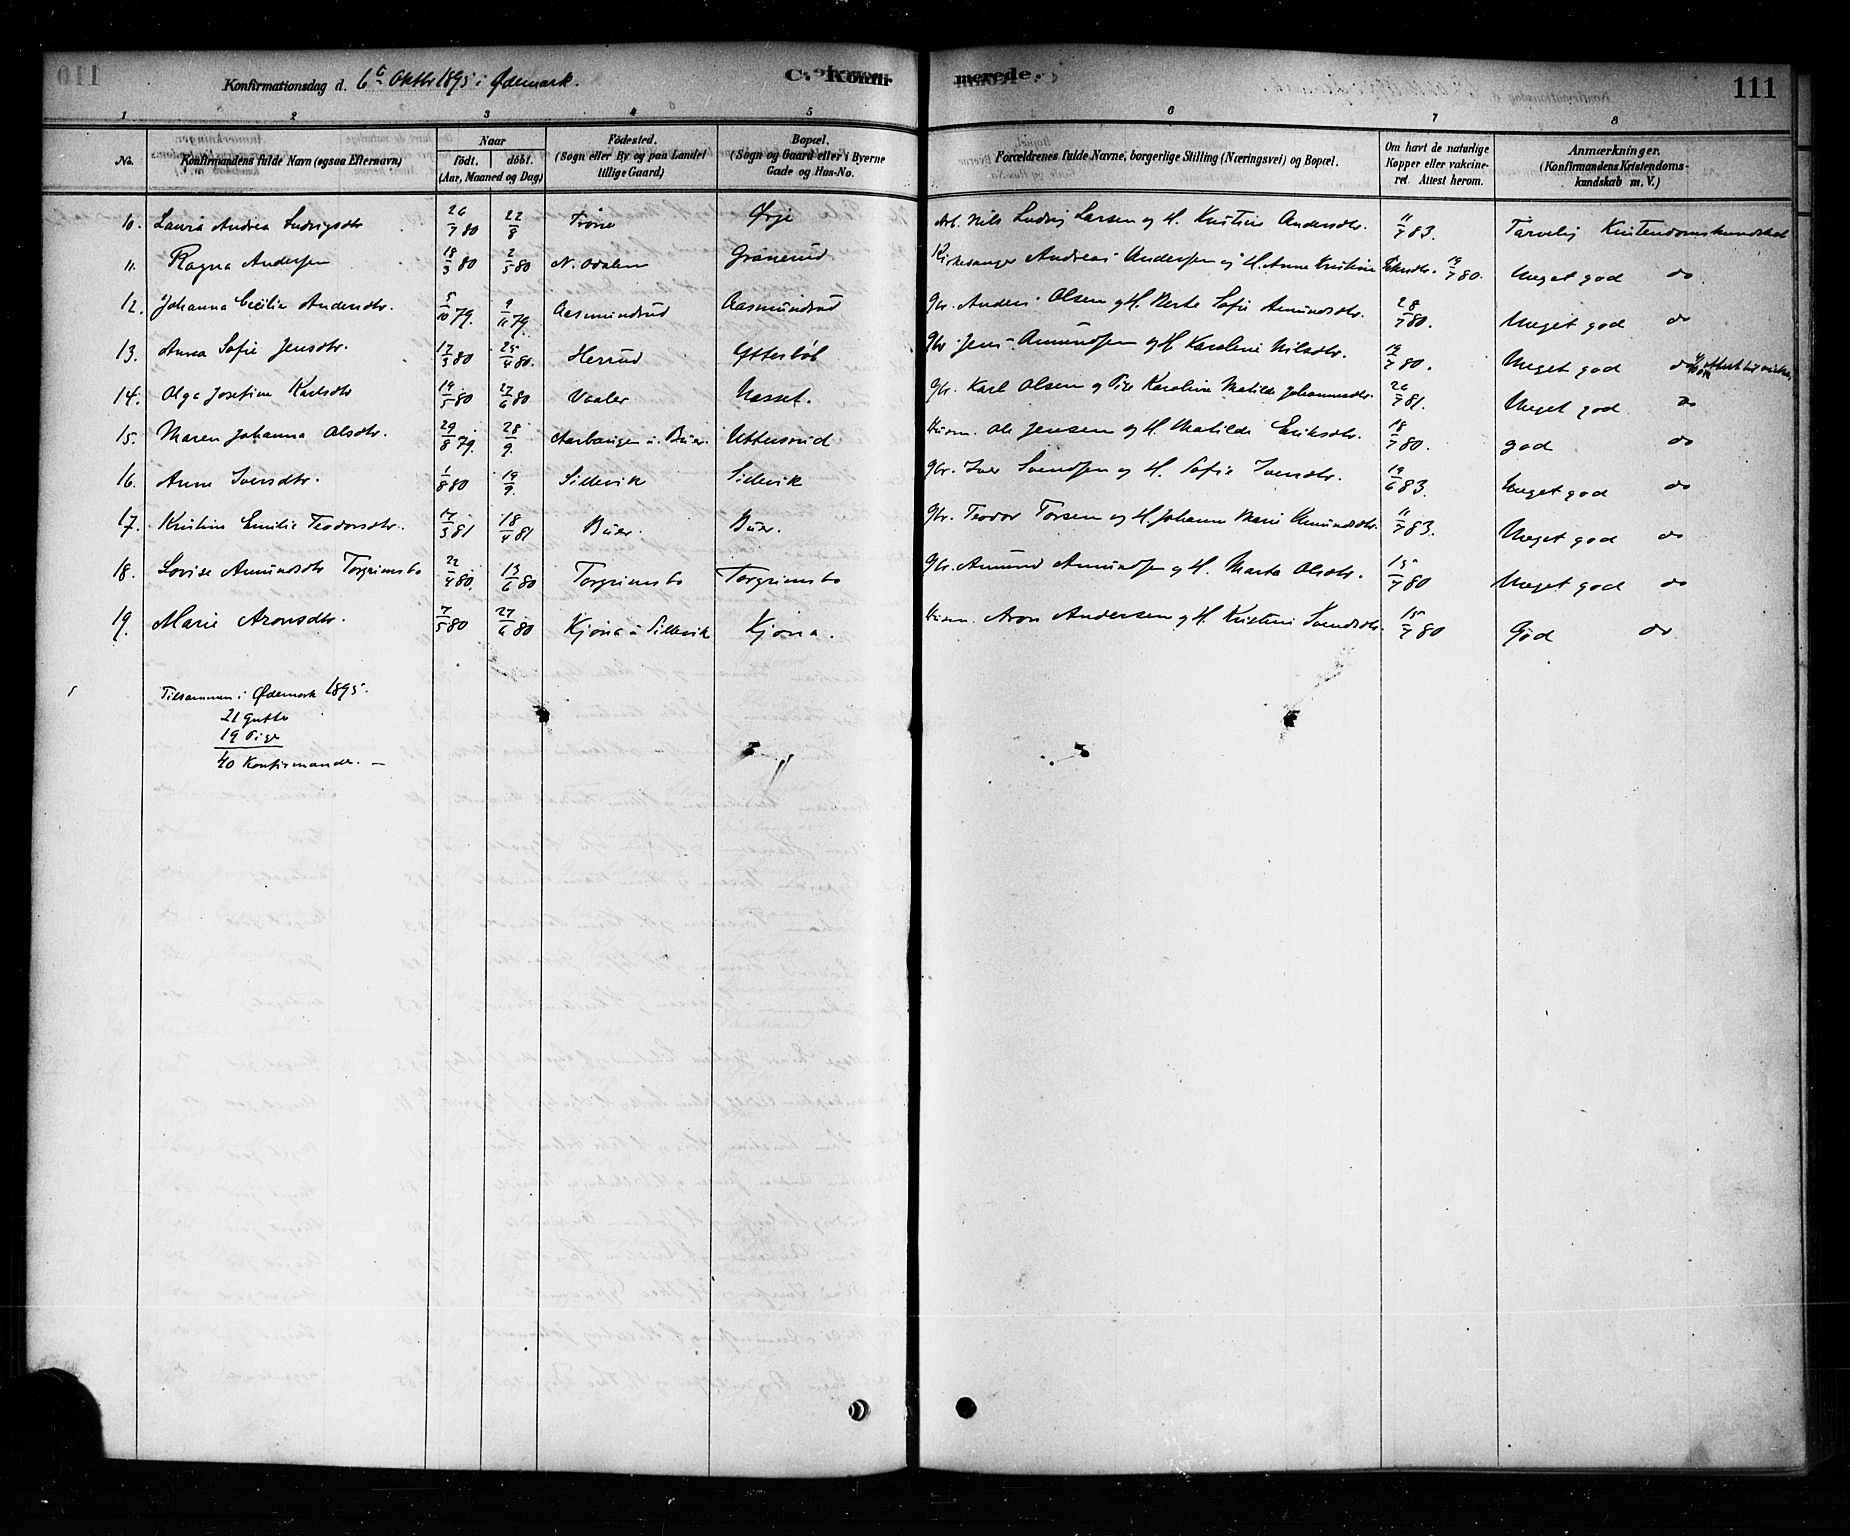 Konfirmationsdag d. 6te Oktbr 1895 i Ødemark.
C. Konfirmerede.
111
1 2 3 4 5 6 7 8
No.
Konfirmandens fulde Navn (ogsaa Efternavn)
Naar
født. døbt.
(Aar, Maaned og Dag)
Fødested.
(Sogn eller By og paa Landet
tillige Gaard)
Bopæl.
(Sogn og Gaard eller i Byerne
Gade og Hus-No.
Forældrenes fulde Navne, borgerlige Stilling (Næringsvei) og Bopæl.
Om havt de naturlige
Kopper eller vakcine-
ret. Attest herom.
Anmærkninger.
(Konfirmandens Kristendoms-
kundskab m. V.)
10. Laura Andrea Ludvigsdtr 26/7 80 22/8 Trøne Ørje Arb. Nils Ludvig Larsen og H. Kristine Andersdtr. 11/7 83. Tarvelig Kristendomskundskab
11. Ragna Andersen 18/3 80 2/5 80 N. Odalen Grønerud Kirkesanger Andreas Andersen og H. Anne Kristine 19/7 80. Meget god do
12. Johanna Cecilie Andersdtr. 5/10 79. 2/11 79. Aasmundrud Aasmundrud Gbr. Anders Olsen og H. Berte Sofie Amundsdtr. 28/7 80. Meget god do
13. Anna Sofie Jensdtr. 17/3 80 25/4 80. Herrud Ytterbøl Gbr. Jens Amundsen og H. Karoline Nilsdtr. 19/7 80. Meget god do
14. Olga Josefine Karlsdtr 19/5 80 27/6 80 Vaaler Næsset. Gbr. Karl Olsen og Karoline Matilde Johannesdtr. 26/7 81. Meget god do
15. Maren Johanna Olsdtr. 29/8 79. 28/9. u. Buer Uttersrud Husm. Ole Jensen og H. Matilde Eriksdtr. 18/7 80. god do
16. Anne Iversdtr. 1/8 80 19/9. Sillevik Sillevik Gbr. Iver Svendsen og H. Sofie Iversdtr. 19/6 83. Meget god do
17. Kristine Emilie Teodorsdtr. 17/3 81 18/4 81 Buer Buer. Gbr. Teodor Torsen og H. Johanne Marie Amundsdtr. 11/7 83. Meget god do
18. Lovise Amundsdtr Torgrimsbo 22/4 80. 13/6 80 Torgrimsbo Torgrimsbo Gbr. Amund Amundsen og H. Marta Olsdtr. 15/7 80 Meget god do
19. Marie Aronsdtr. 7/5 80 27/6 80 Kjøna u. Sillevik Kjøna. Husm. Aron Andersen og H. Kristine Svendsdtr. 15/7 80 God do
Tilsammen i Ødemark 1895.
21 Gutter
19 Piger
40 Konfirmander. —